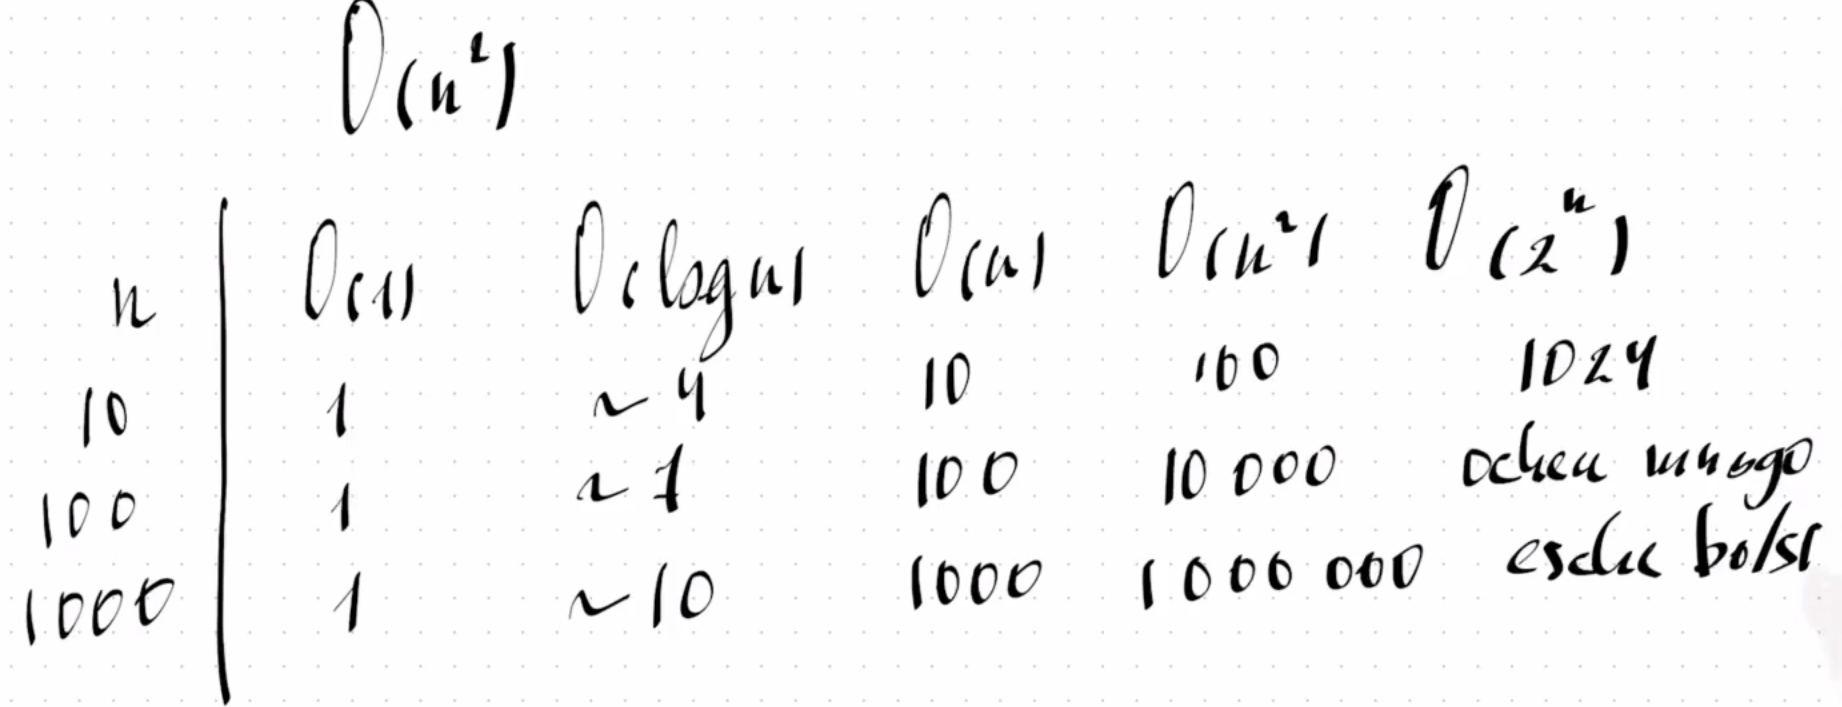 O(n²)
n O(1) O(logn) O(n) O(n²) O(2ⁿ)
10 1 ~4 10 100 1024
100 1 ~7 100 10 000 ochen mnogo
1000 1 ~10 1000 1 000 000 esche bolsh